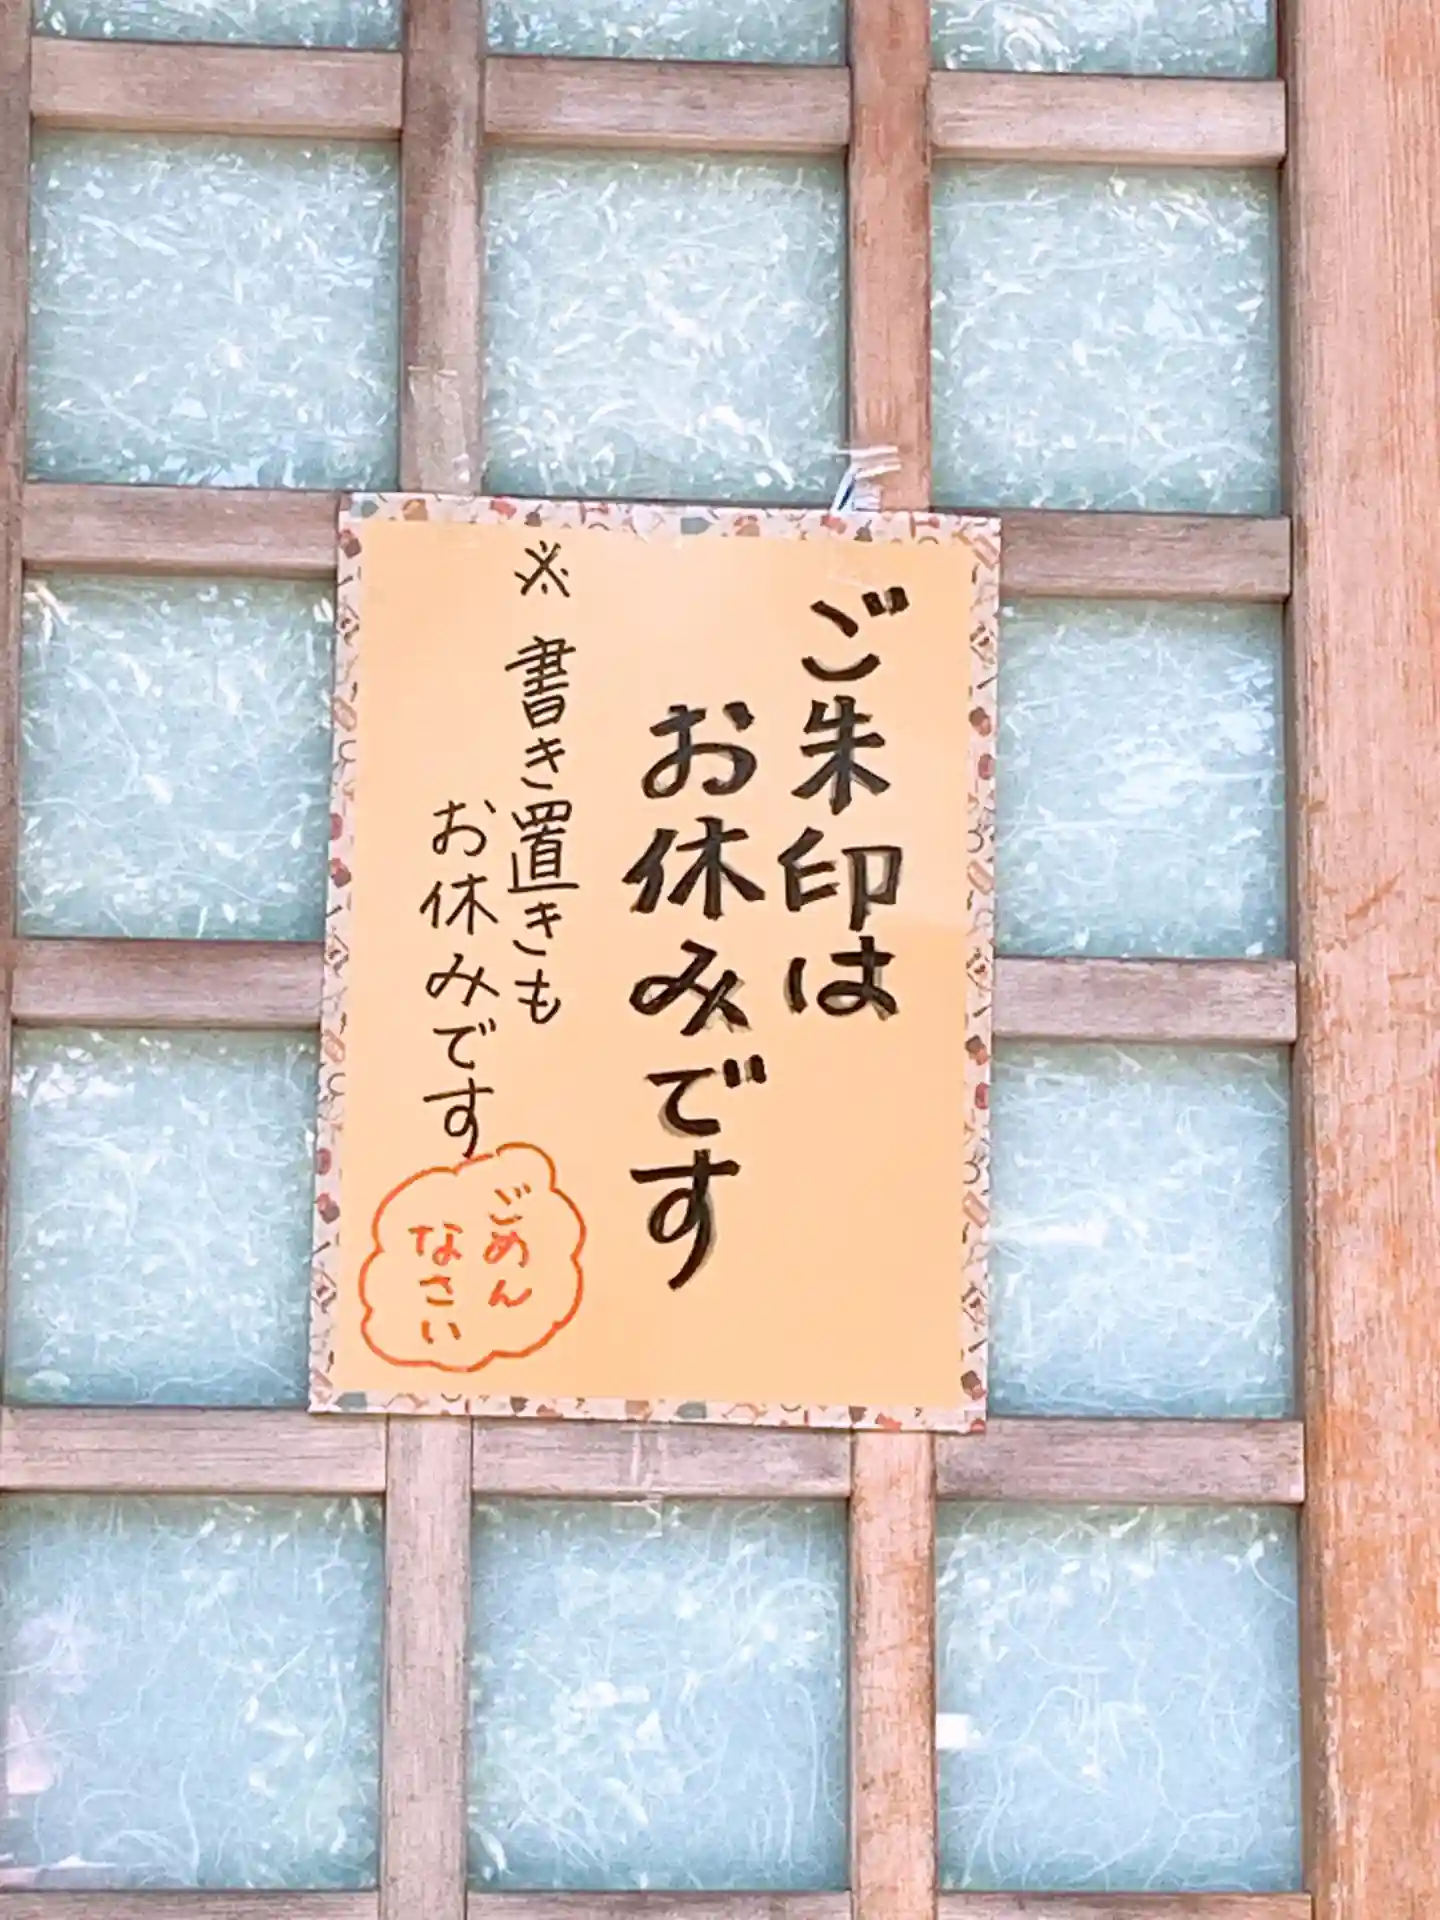 ご朱印は
お休みです
※ 書き置きも
お休みです
ごめん
なさい